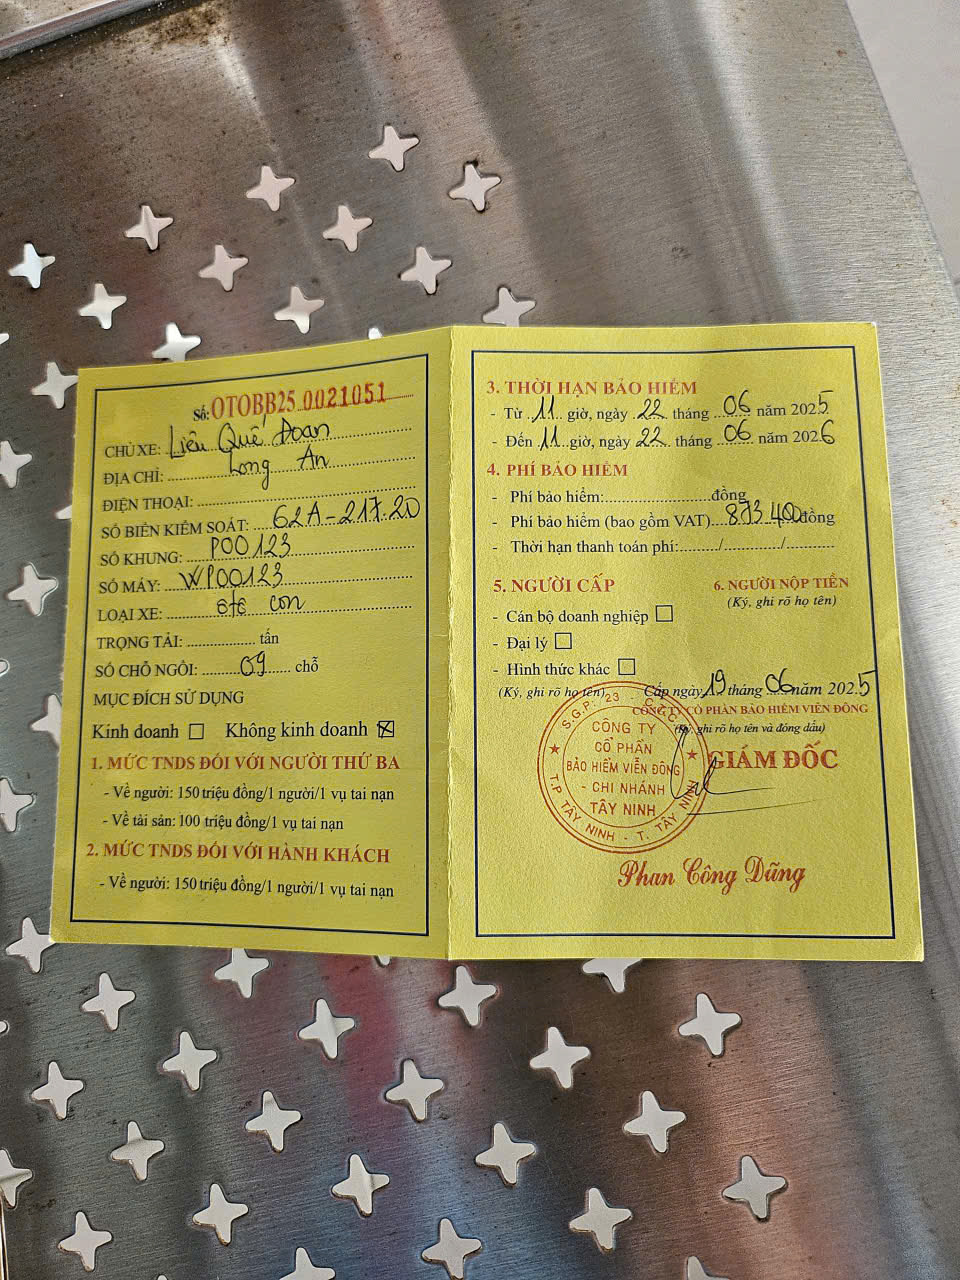 Số: OTOBB25 0021051
CHỦ XE: Liêu Quế Đoan
ĐỊA CHỈ: Long An
ĐIỆN THOẠI:
SỐ BIỂN KIỂM SOÁT: 62A-217.20
SỐ KHUNG: P00123
SỐ MÁY: WP00123
LOẠI XE: ôtô con
TRỌNG TẢI: tấn
SỐ CHỖ NGỒI: 09 chỗ
MỤC ĐÍCH SỬ DỤNG
Kính doanh ☐ Không kinh doanh ☒
1. MỨC TNDS ĐỐI VỚI NGƯỜI THỨ BA
- Về người: 150 triệu đồng/1 người/1 vụ tai nạn
- Về tài sản: 100 triệu đồng/1 vụ tai nạn
2. MỨC TNDS ĐỐI VỚI HÀNH KHÁCH
- Về người: 150 triệu đồng/1 người/1 vụ tai nạn
3. THỜI HẠN BẢO HIỂM
- Từ 11 giờ, ngày 22 tháng 06 năm 2025
- Đến 11 giờ, ngày 22 tháng 06 năm 2026
4. PHÍ BẢO HIỂM
- Phí bảo hiểm: đồng
- Phí bảo hiểm (bao gồm VAT) 873.400 đồng
- Thời hạn thanh toán phí: / /
5. NGƯỜI CẤP
6. NGƯỜI NỘP TIỀN
(Ký, ghi rõ họ tên)
- Cán bộ doanh nghiệp ☐
- Đại lý ☐
- Hình thức khác ☐
(Ký, ghi rõ họ tên)
Cấp ngày 19 tháng 06 năm 2025
CÔNG TY CỔ PHẦN BẢO HIỂM VIỄN ĐÔNG
(Ký, ghi rõ họ tên và đóng dấu)
GIÁM ĐỐC
S.G.P: 23 - C.T.C.P
CÔNG TY
CỔ PHẦN
BẢO HIỂM VIỄN ĐÔNG
- CHI NHÁNH
TÂY NINH
T.P TÂY NINH - T. TÂY NINH
Phan Công Dũng